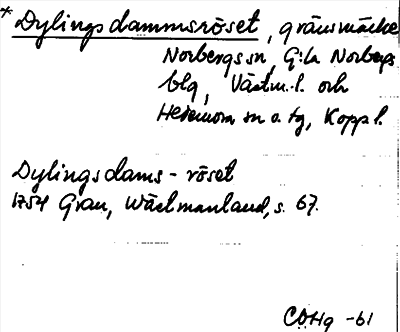 * Dylingsdammsröset, gränsmärke
Norbergs sn, G:la Norbergs
blg, Västm. l. och
Hedemora sn o. tg, Kopp l.
Dylingsdams-röset
1754 Grau, Wästmanland, s. 67.
COHg -61